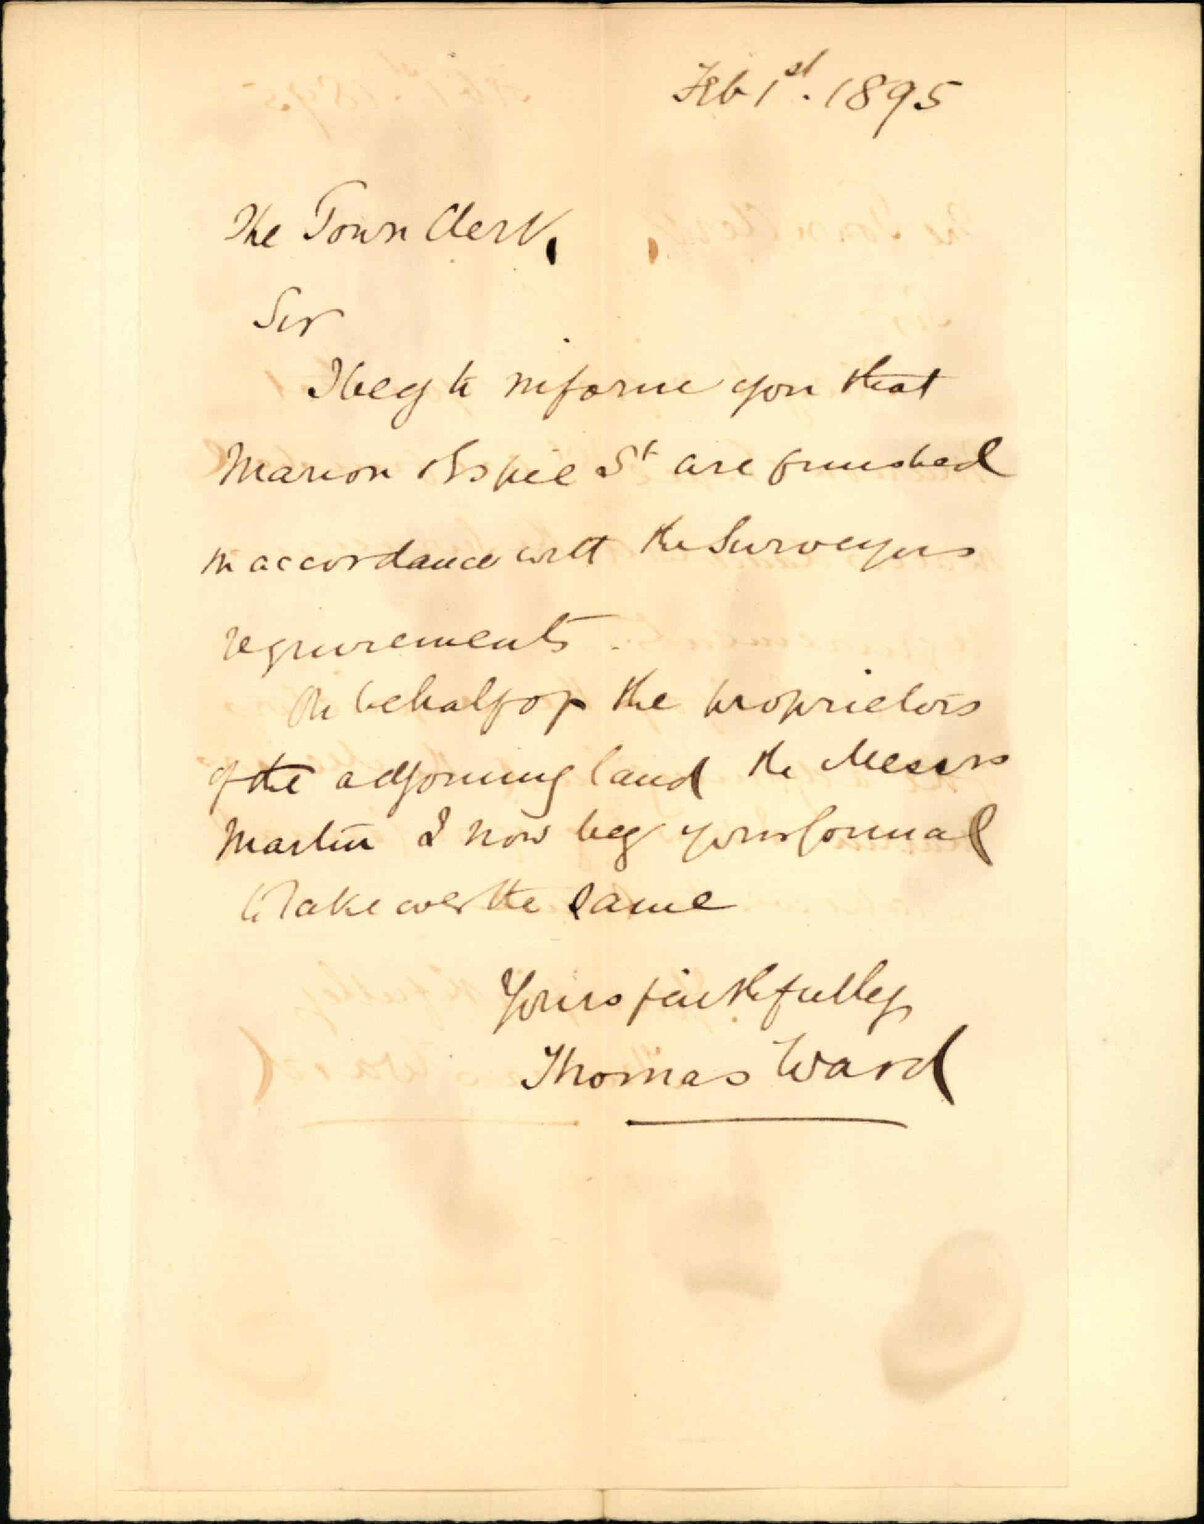 Feb 1st. 1895
The Town Clerk,
Sir
I beg to inform you that
Marion & Espie St are finished
in accordance with the Surveyors
requirements.
On behalf of the proprietors
of the adjoining land the Messrs
Martin I now beg your formal
to take over the same
Yours faithfully
Thomas Ward